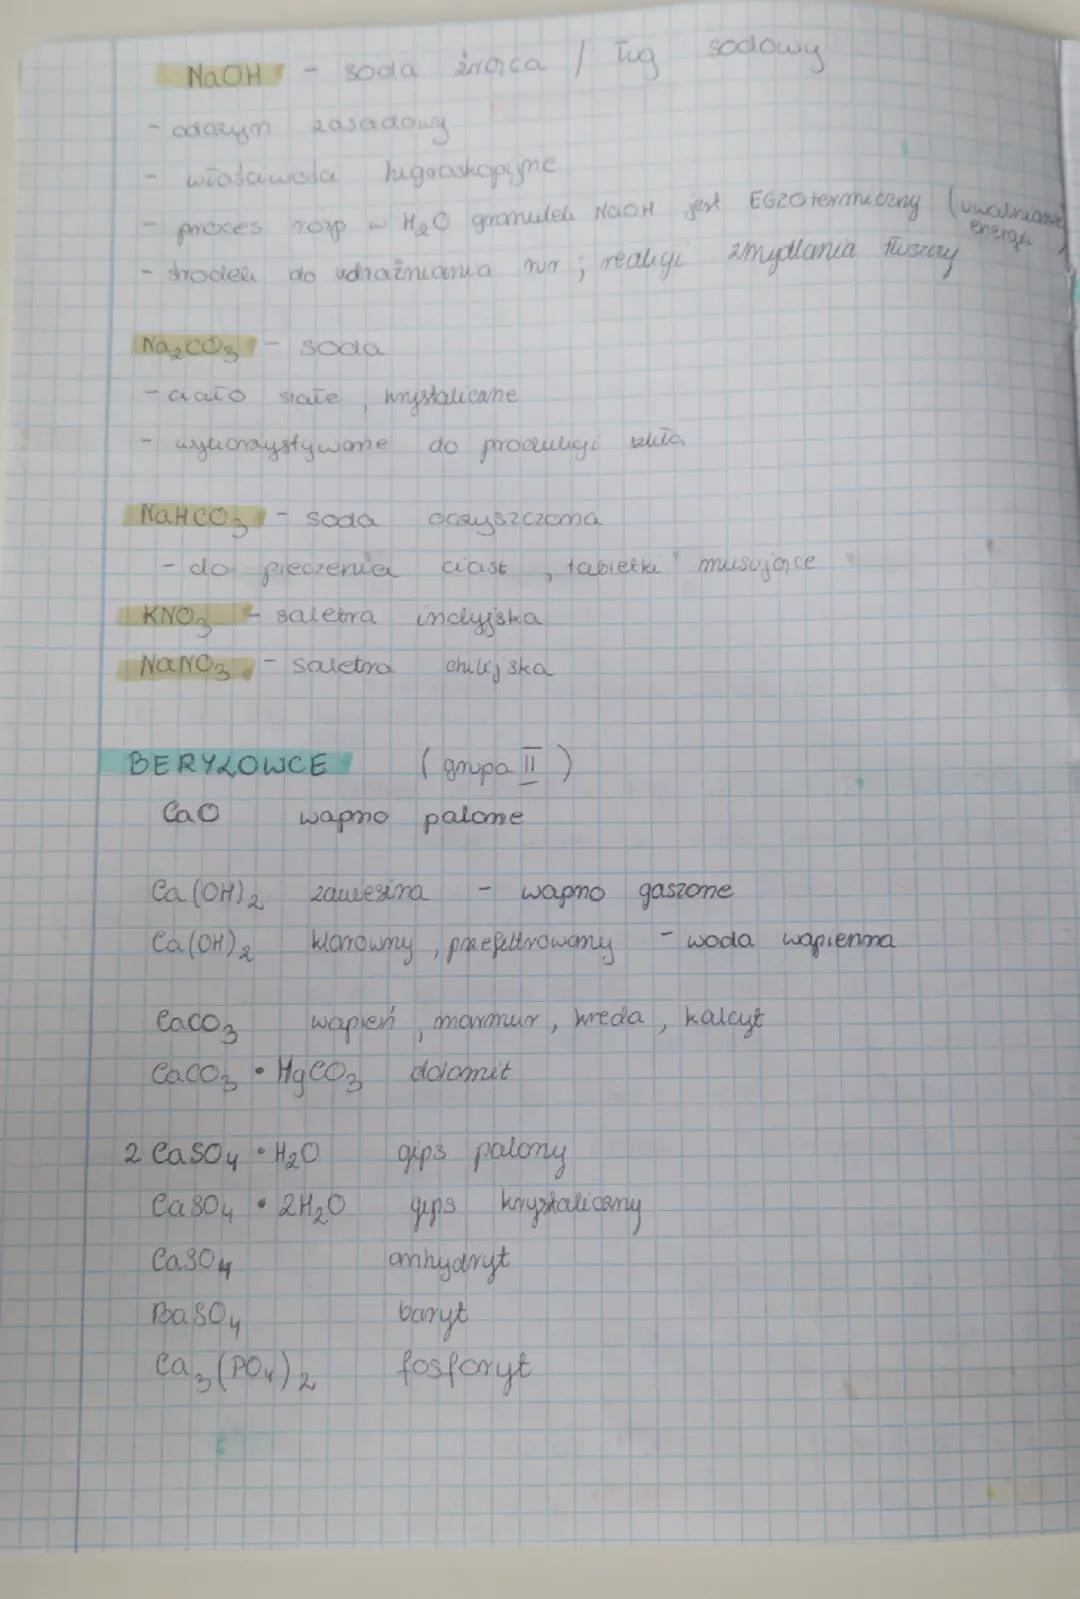 NaOH - soda żrąca / ług sodowy
- odczyn zasadowy
- właściwości higroskopijne
- proces rozp w H₂O granulek NaOH jest EGZOtermiczny (uwalnianie energii)
- środek do udrażniania rur ; reakcji zmydlania tłuszczy
Na₂CO₃ - soda
- ciało stałe , krystaliczne
- wykorzystywane do produkcji szkła
NaHCO₃ - soda oczyszczona
- do pieczenia ciast , tabletki musujące
KNO₃ - saletra indyjska
NaNO₃ - saletra chilijska
BERYLOWCE ( grupa II )
CaO wapno palone
Ca(OH)₂ zawiesina - wapno gaszone
Ca(OH)₂ klarowny , przefiltrowany - woda wapienna
CaCO₃ wapień , marmur , kreda , kalcyt
CaCO₃ • MgCO₃ dolomit
2 CaSO₄ • H₂O gips palony
CaSO₄ • 2H₂O gips krystaliczny
CaSO₄ anhydryt
BaSO₄ baryt
Ca₃(PO₄)₂ fosforyt